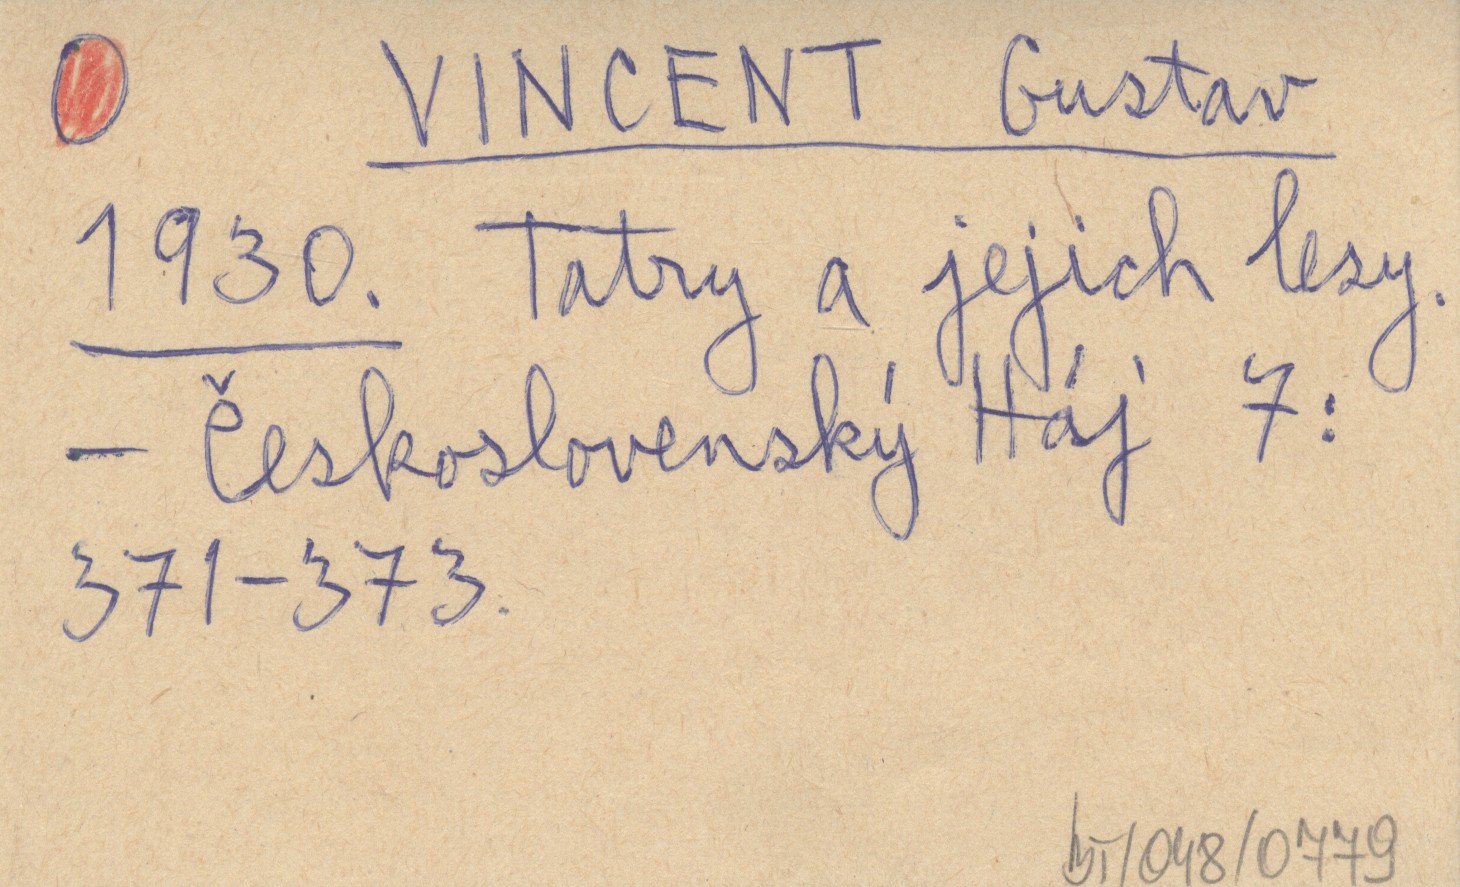 VINCENT Gustav
1930. Tatry a jejich lesy.
– Československý Háj 7:
371–373.
bi/048/0779